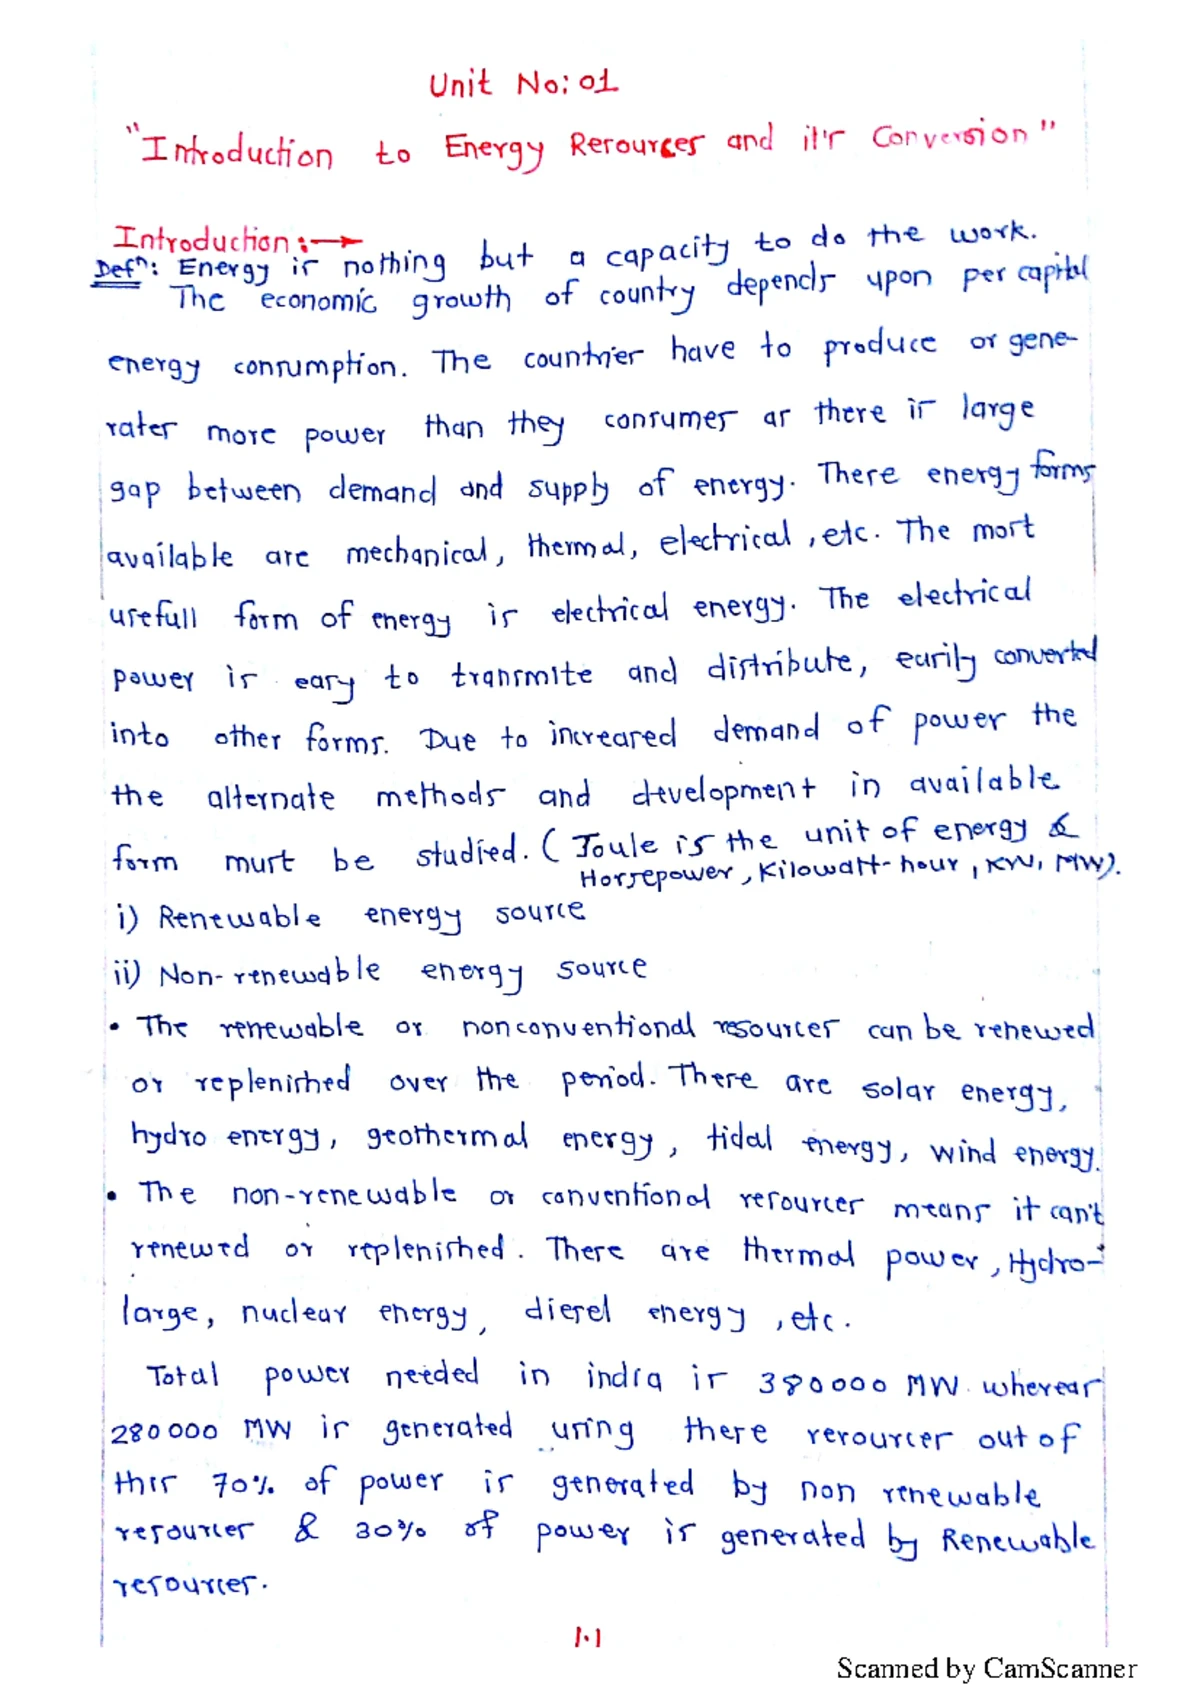 Unit No: 01
"Introduction to Energy Resources and it's Conversion"
Introduction :→
Defⁿ: Energy is nothing but a capacity to do the work.
The economic growth of country depends upon per capital
energy consumption. The countries have to produce or gene-
rates more power than they consumes as there is large
gap between demand and supply of energy. These energy forms
available are mechanical, thermal, electrical, etc. The most
usefull form of energy is electrical energy. The electrical
power is easy to transmite and distribute, easily converted
into other forms. Due to increased demand of power the
the alternate methods and development in available
form must be studied. (Joule is the unit of energy &
Horsepower, Kilowatt-hour, KW, MW).
i) Renewable energy source
ii) Non-renewable energy source
• The renewable or nonconventional resources can be renewed
or replenished over the period. These are solar energy,
hydro energy, geothermal energy, tidal energy, wind energy.
• The non-renewable or conventional resources means it can't
renewed or replenished. These are thermal power, Hydro-
large, nuclear energy, diesel energy, etc.
Total power needed in india is 380000 MW whereas
280000 MW is generated using these resources out of
this 70% of power is generated by non renewable
resources & 30% of power is generated by Renewable
resources.
1.1
Scanned by CamScanner